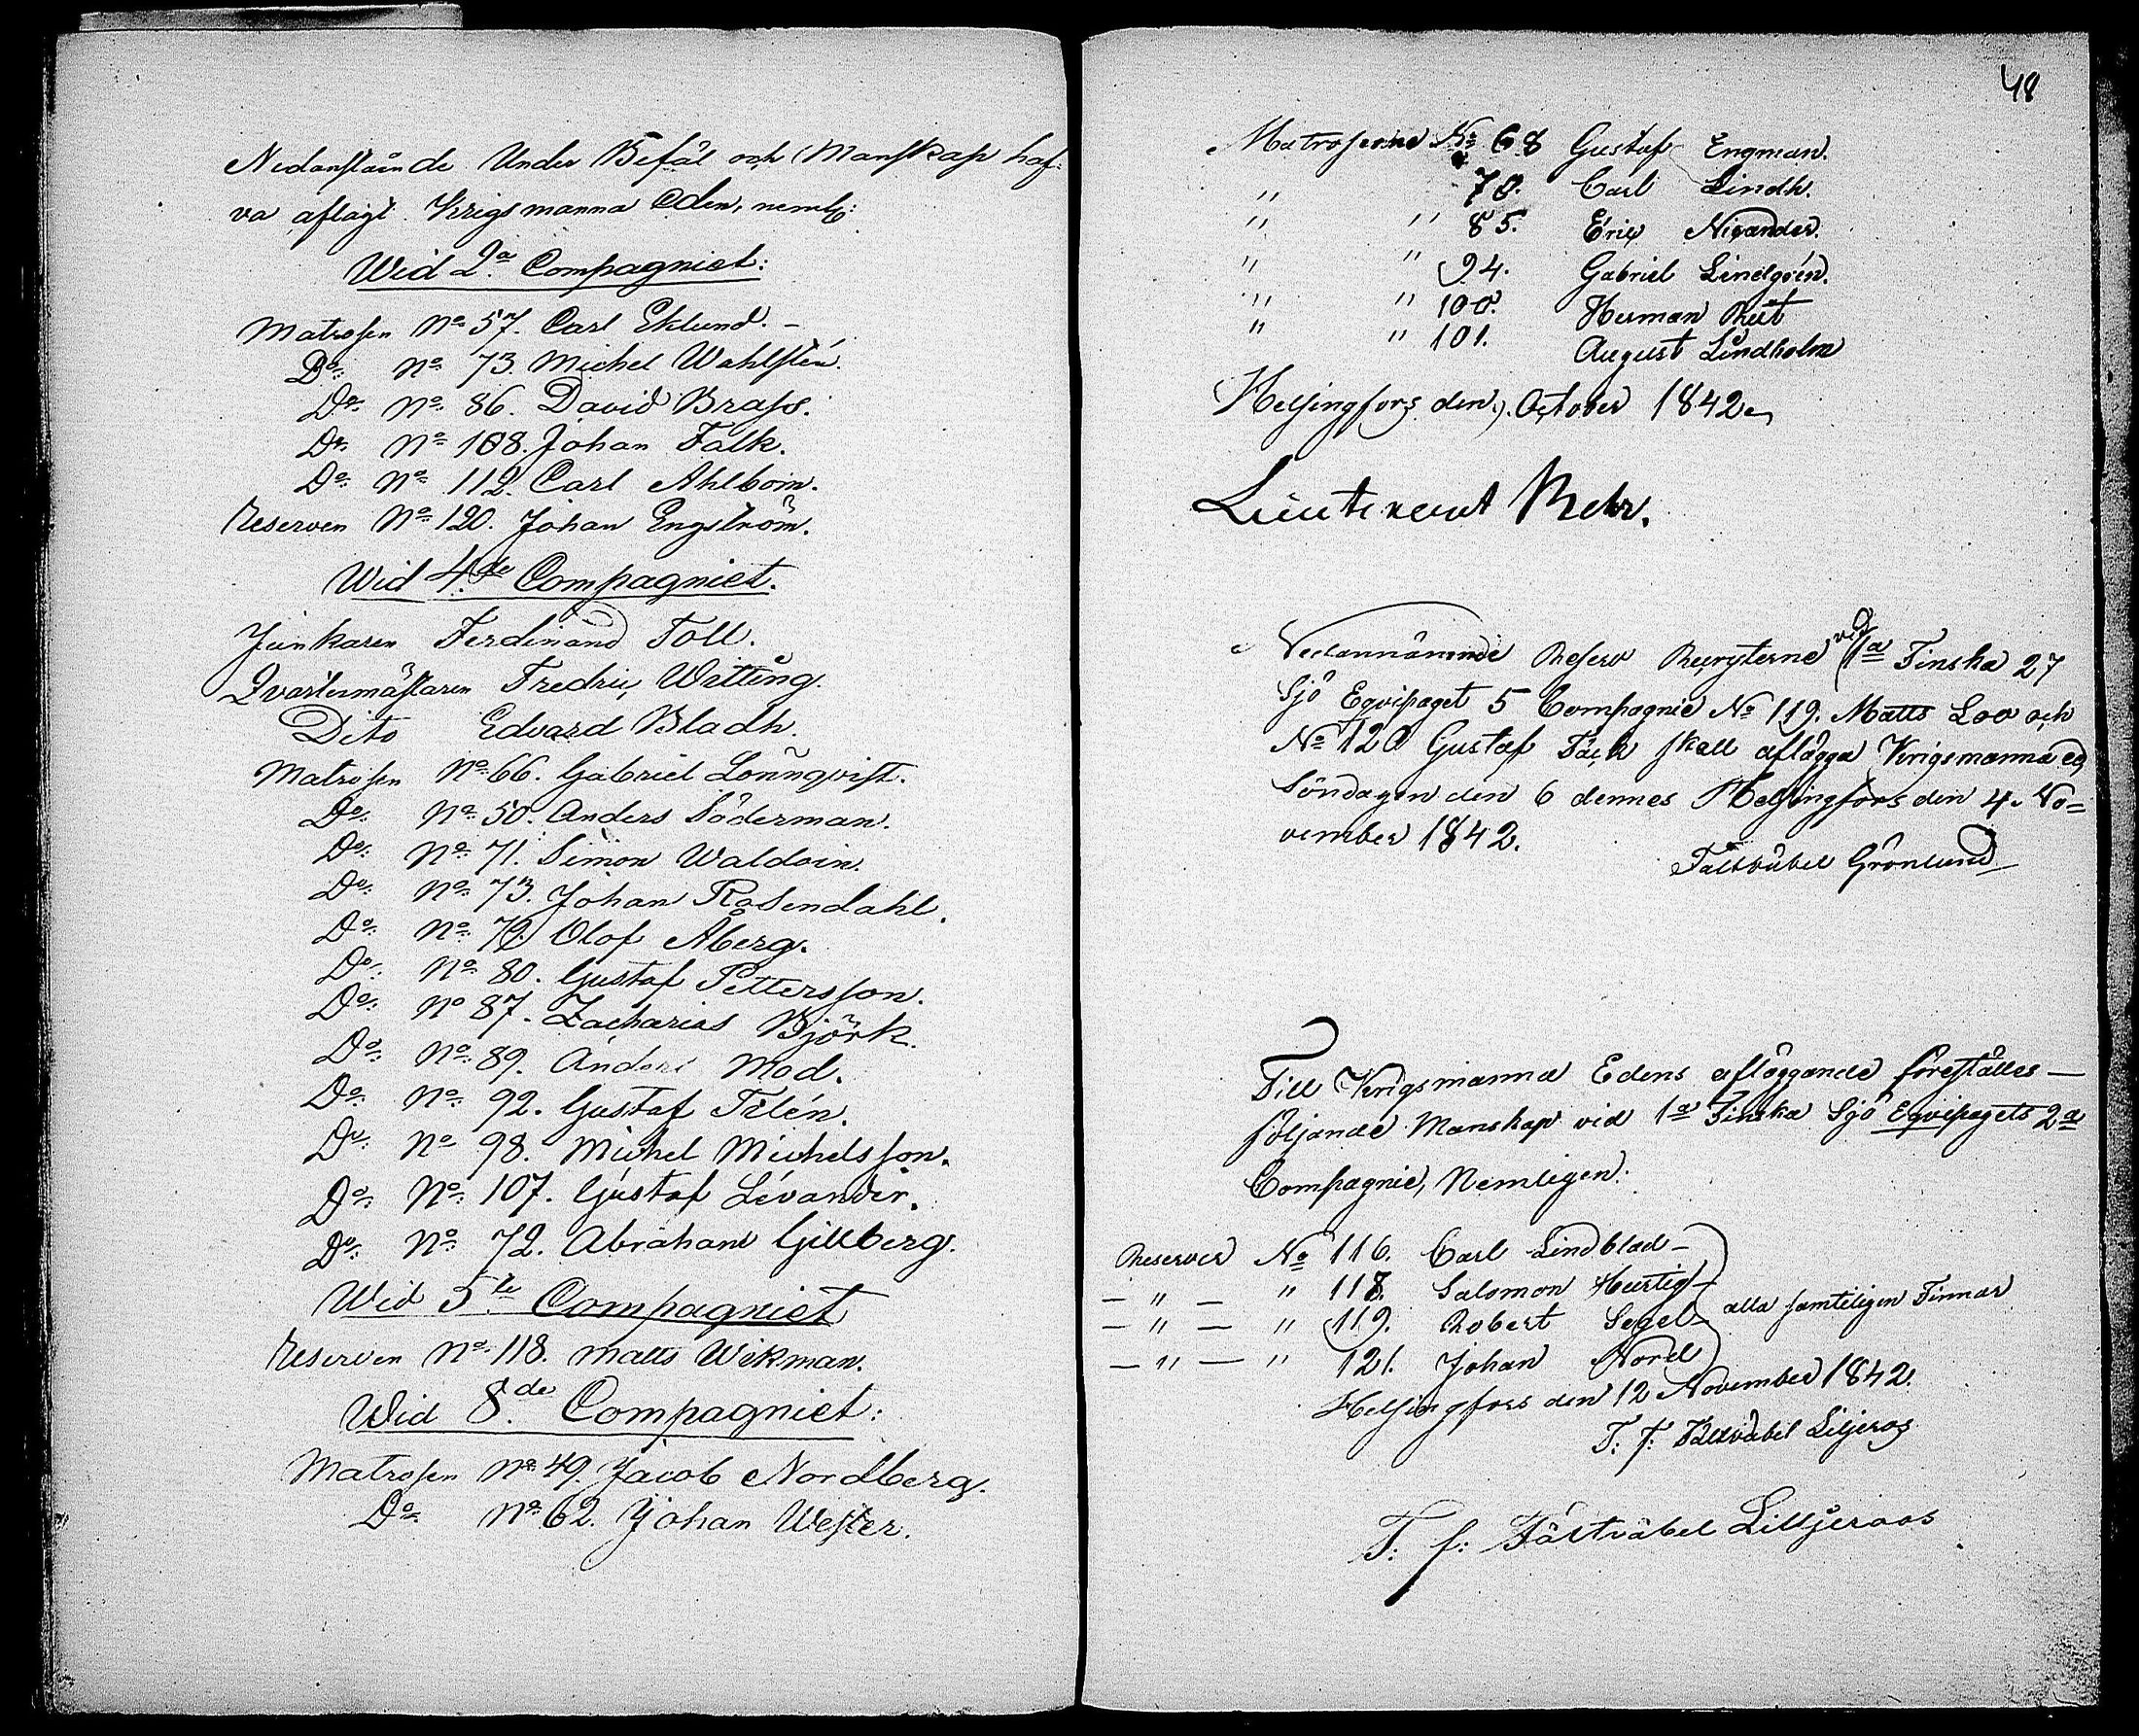 Nedanstående Under Befäl och Manskap haf-
va aflagt Krigsmanna Eden, neml:
Wid 2a Compagniet:
Matrosen No 57. Carl Eklund. -
Do: No 73. Michel Wahlstén.
Do: No 86. David Brass.
Do: No 108. Johan Falk.
Do: No 112. Carl Ahlbom.
Reserven No 120. Johan Engström.
Wid 4de Compagniet.
Junkaren Ferdinand Toll.
Qvartermästaren Fredric Witting.
Dito Edvard Bladh.
Matrosen No 66. Gabriel Lönnqvist.
Do: No 50. Anders Söderman.
Do: No 71. Simon Waldoin.
Do: No 73. Johan Rosendahl.
Do: No 79. Olof Åberg.
Do: No 80. Gustaf Pettersson.
Do: No 87. Zacharias Björk.
Do: No 89. Anders Mod.
Do: No 92. Gustaf Trlén.
Do: No 98. Michel Michelsson.
Do: No 107. Gustaf Levander.
Do: No 72. Abraham Gillberg.
Wid 5te Compagniet
Reserven No 118. Matts Wikman.
Wid 8de Compagniet:
Matrosen No 49. Jacob Nordberg.
Do: No 62. Johan Wester.
48
Matroserne No 68 Gustaf Engman.
" 78. Carl Lindh.
" " 85. Eric Nicander.
" " 94. Gabriel Lindgrén.
" " 100. Herman
" " 101. August Lindholm
Helsingfors den October 1842
Lieutenant Behr.
Nedannämnde Reserv Recryterne vid 1a Finska 27
Sjö Eqvipaget 5 Compagnie No 119. Matts Loo och
No 120 Gustaf Täck skall aflägga Krigsmanna ed
Söndagen den 6 dennes Helsingfors den 4. No-
vember 1842.
Fältväbel Grönlund
Till Krigsmanna Edens afläggande föreställes -
följande Manskap vid 1a Finska Sjö Eqvipagets 2a
Compagnie, Nemligen:
Reserver No 116. Carl Lindblad -
- " - " 118. Salomon Hurtig -
- " - " 119. Robert Segel - alla samteligen Finnar
- " - " 121. Johan Nord
Helsingfors den 12 November 1842.
T: f: Fältväbel Liljeros
T: f: Fältväbel Lilljeroos